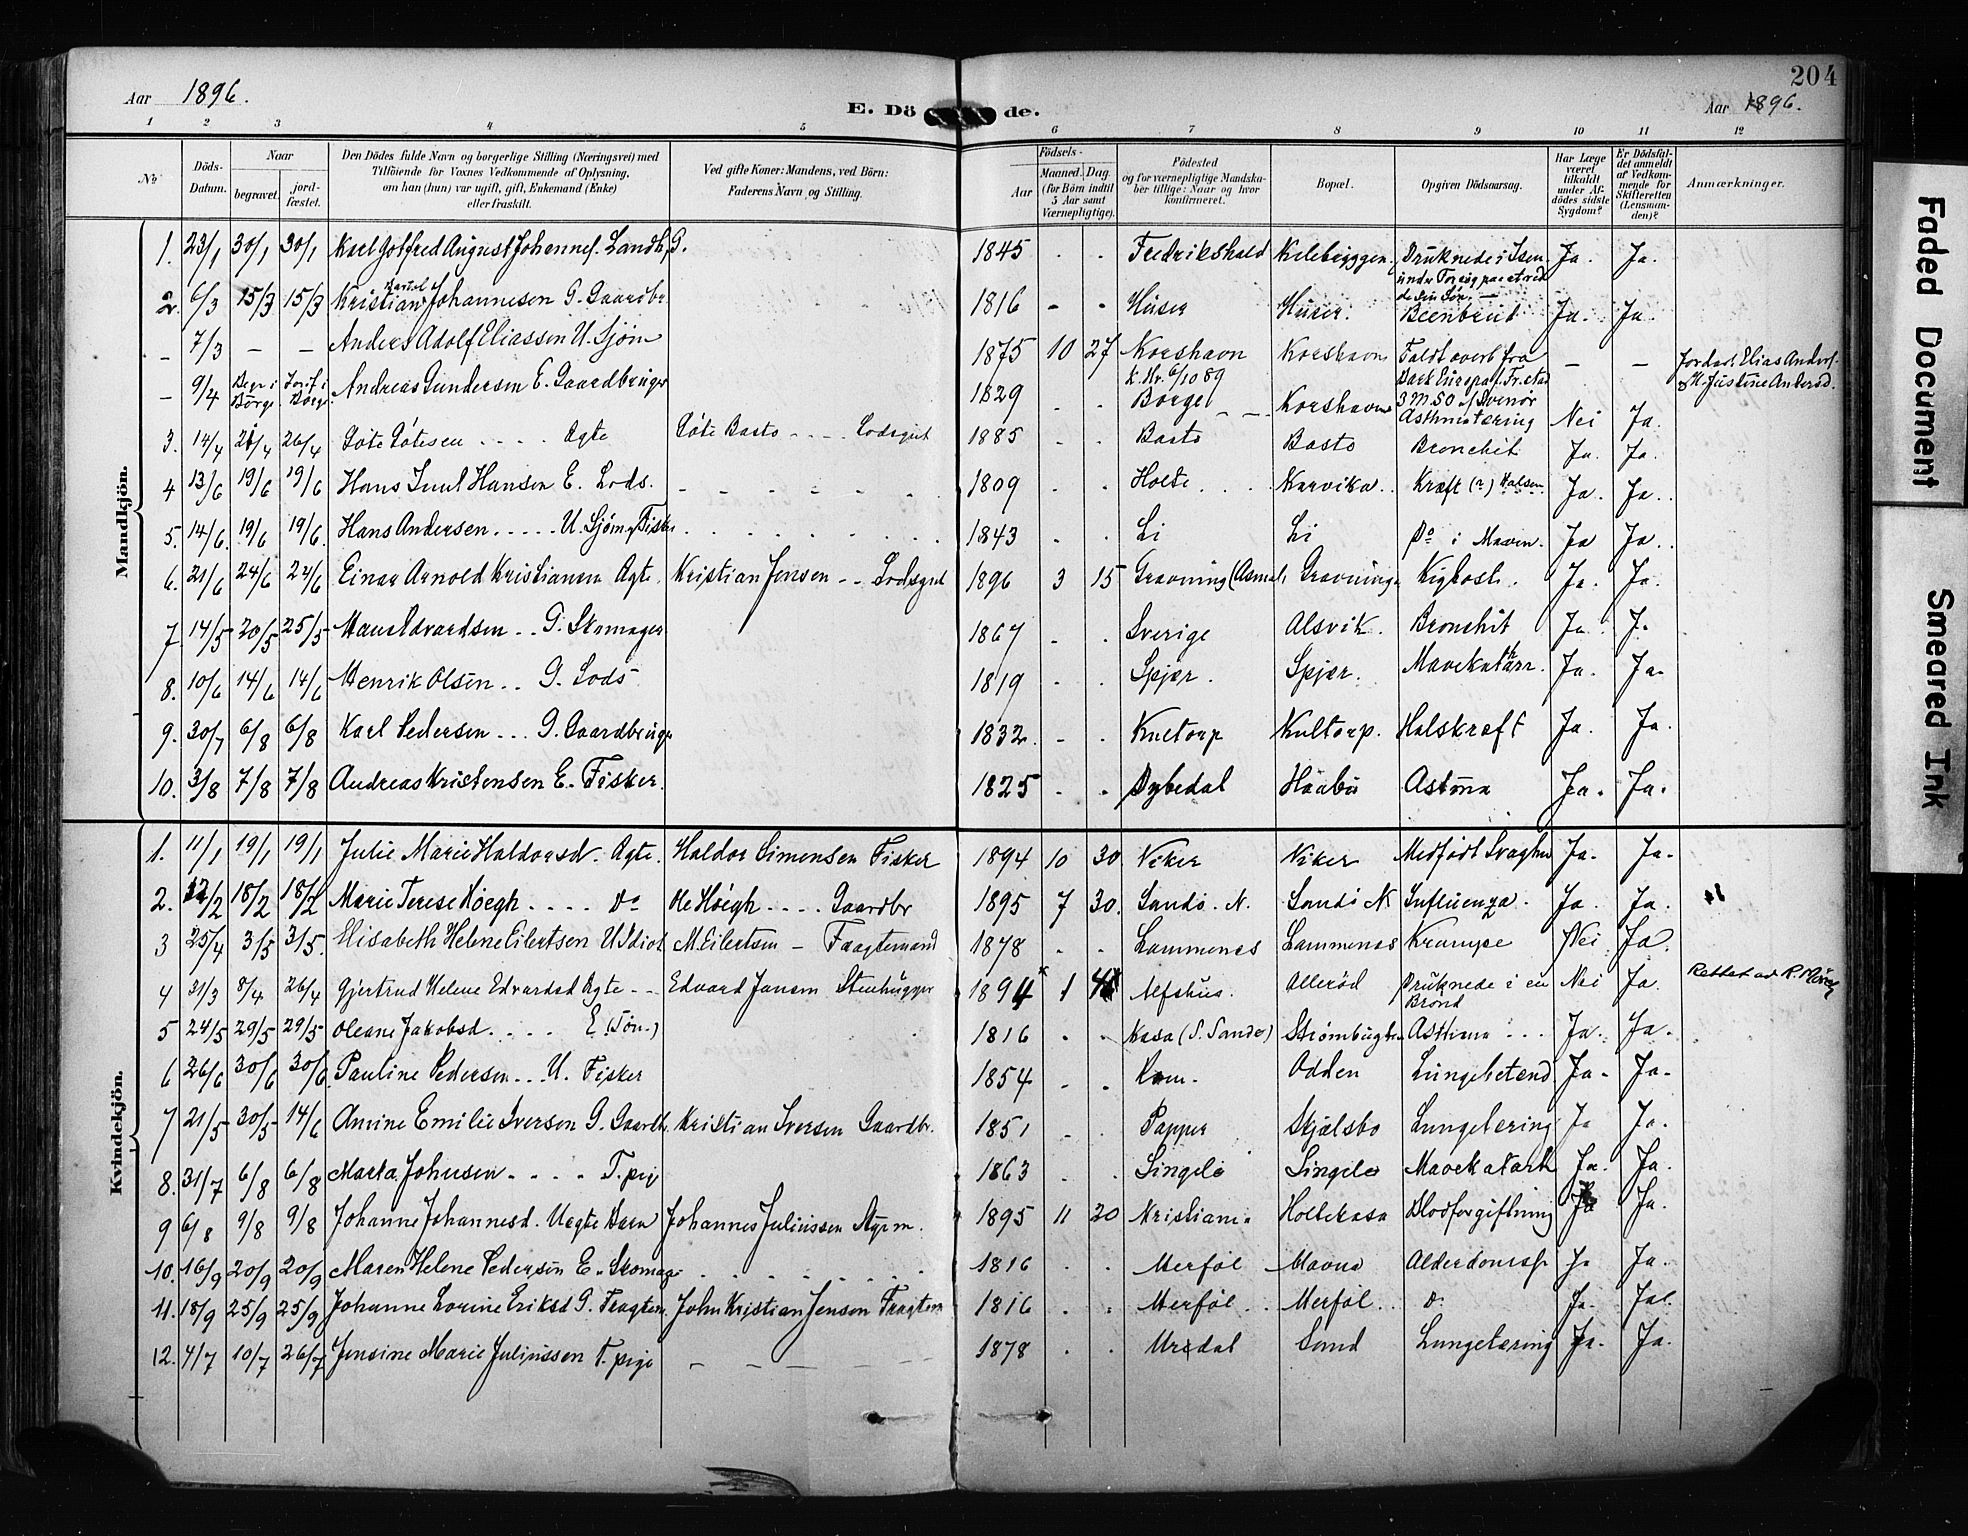 204
Aar 1896.
E. Döde.
Aar 1896.
1 2 3 4 5 6 7 8 9 10 11 12
No
Döds-Datum.
Naar
begravet.
jord-fæstet.
Den Dödes fulde Navn og borgerlige Stilling (Næringsvei) med
Tilföiende for Voxnes Vedkommende af Oplysning,
om han (hun) var ugift, gift, Enkemand (Enke)
eller fraskilt.
Ved gifte Koner: Mandens, ved Börn:
Faderens Navn og Stilling.
Födsels-
Aar
Maaned. Dag.
(for Börn indtil
5 Aar samt
Værnepligtige).
Födested
og for værnepligtige Mandska-
ber tillige: Naar og hvor
konfirmeret.
Bopæl.
Opgiven Dödsaarsag.
Har Læge
været
tilkaldt
under Af-
dödes sidste
Sygdom?
Er Dödsfal-
det anmeldt
af Vedkom-
mende for
Skifteretten
(Lensman-
den)?
Anmærkninger.
Mandkjön.
1. 23/1 30/1 30/1 Karl Gotfred August Johannes. Landh. G. 1845 Fredrikshald Kilebryggen. Druknede i Isen under Forsøg paa at redde Sin Søn. Ja. Ja.
2. 6/3 15/3 15/3 Kristian Johannesen G. Gaardbr. 1816 Huser Huser. Beenbrud Ja. Ja.
– 7/3 – – Anders Adolf Eliassen U. Sjøm 1875 10 27 Korshavn K. Hv. 6/10 89 Korshavn Faldt overb fra Bark Europa f. Fr.stad – – Elias Anders. Justine Andersd.
– 9/4 Begr i Borge Jordf i Borge Andreas Gundersen E. Gaardbruger 1829 Borge Korshavn Nei Ja.
3. 14/4 21/4 26/4 Gøte Gøtesen Ægte Gøte Basto Lodsgut 1885 Basto Basto Bronchit Ja. Ja.
4 13/6 19/6 19/6 Hans Juul Hansen E. Lods. 1809 Holte Karvika Kræft (i) Halsen Ja. Ja.
5. 14/6. 19/6 19/6. Hans Andersen U. Sjøm. Fisker 1843 Li Li Do i Maven. Ja Ja.
6. 21/6 24/6 24/6 Einar Arnold Kristiansen Ægte. Kristian Jensen Lodsgut 1896 3 15 Gravning (Asmal. Gravning. Kighoste. Ja. Ja.
7. 14/5 20/5 25/5 Hans Edvardsen G. Skomager 1867 Sverige Alsvik. Bronchit Ja. J.
8. 10/6 14/6 14/6 Henrik Olsen G. Lods 1819 Spjær. Spjær. Mavekatarr. Ja. Ja.
9. 30/7 6/8 6/8 Karl Pedersen G. Gaardbruger 1832 Kultorp Kultorp. Halskræft Ja. Ja.
10. 3/8 7/8 7/8 Andreas Kristensen E. Fisker. 1825 Dybedal Haabu Astma Ja. Ja.
Kvindekjön.
1. 11/1 19/1 19/1 Julie Marie Haldorsd. Ægte. Haldor Simensen Fisker 1894 10 30 Viker Viker Medfødt Svaghed Ja. Ja.
2. 12/2 18/2 18/2 Marie Terese Høegh Do Ole Høigh Gaardbr 1895 7 30. Sandø. N. Sandø N Influenza. Ja. Ja.
3 25/4 3/5 3/5. Elisabeth Helene Eilertsen U Idiot M. Eilertsen – Fragtemand 1878 Lammenes Lammenes Krampe Nei Ja.
4 31/3 8/4 26/4 Gjertrud Helene Edvardsd Ægte Edvard Jansen Stenhugger 1894 1 Alfshus. Allerød Druknede i en Brønd Nei Ja. Rettet av R. Mörch
5 24/5 29/5 29/5. Oleane Jakobsd. E (Tøn.) 1816 Kasa (S. Sandø) Strømbugten Asthma Ja. Ja.
6 26/6 30/6 30/6. Pauline Pedersen U. Fisker 1854 Rom. Odden Lungebetænd Ja. Ja.
7 21/5 30/5 14/6 Amine Emilie Iversen G. Gaardb. Kristian Iversen Gaardbr. 1851 Papper Skjælsbo Lungetæring Ja Ja.
8. 31/7 6/8 6/8 Marta Johnsen T. pig 1863 Singelø Singelø Mavekatarh Ja. Ja.
9 6/8 9/8 9/8 Johanne Johannesd. Uægte Barn Johannes Juliussen Styrm. 1895 11 20 Kristiania Holtekasa Blodforgiftning Ja Ja.
10. 16/9 20/9 20/9 Maren Helene Pedersen E. Skomag. 1816 Merføl Mavna Alderdomssl. Ja Ja.
11. 18/9 25/9 25/9 Johanne Lovine Eriksd G. Fragtem. John Kristian Jensen Fragtem 1816 Merføl Merføl D. Ja. Ja.
12. 4/7 10/7 26/7 Jensine Marie Juliussen T. pige 1878 Urdal Sand Lungetæring Ja. Ja.
Faded Document
Smeared Ink